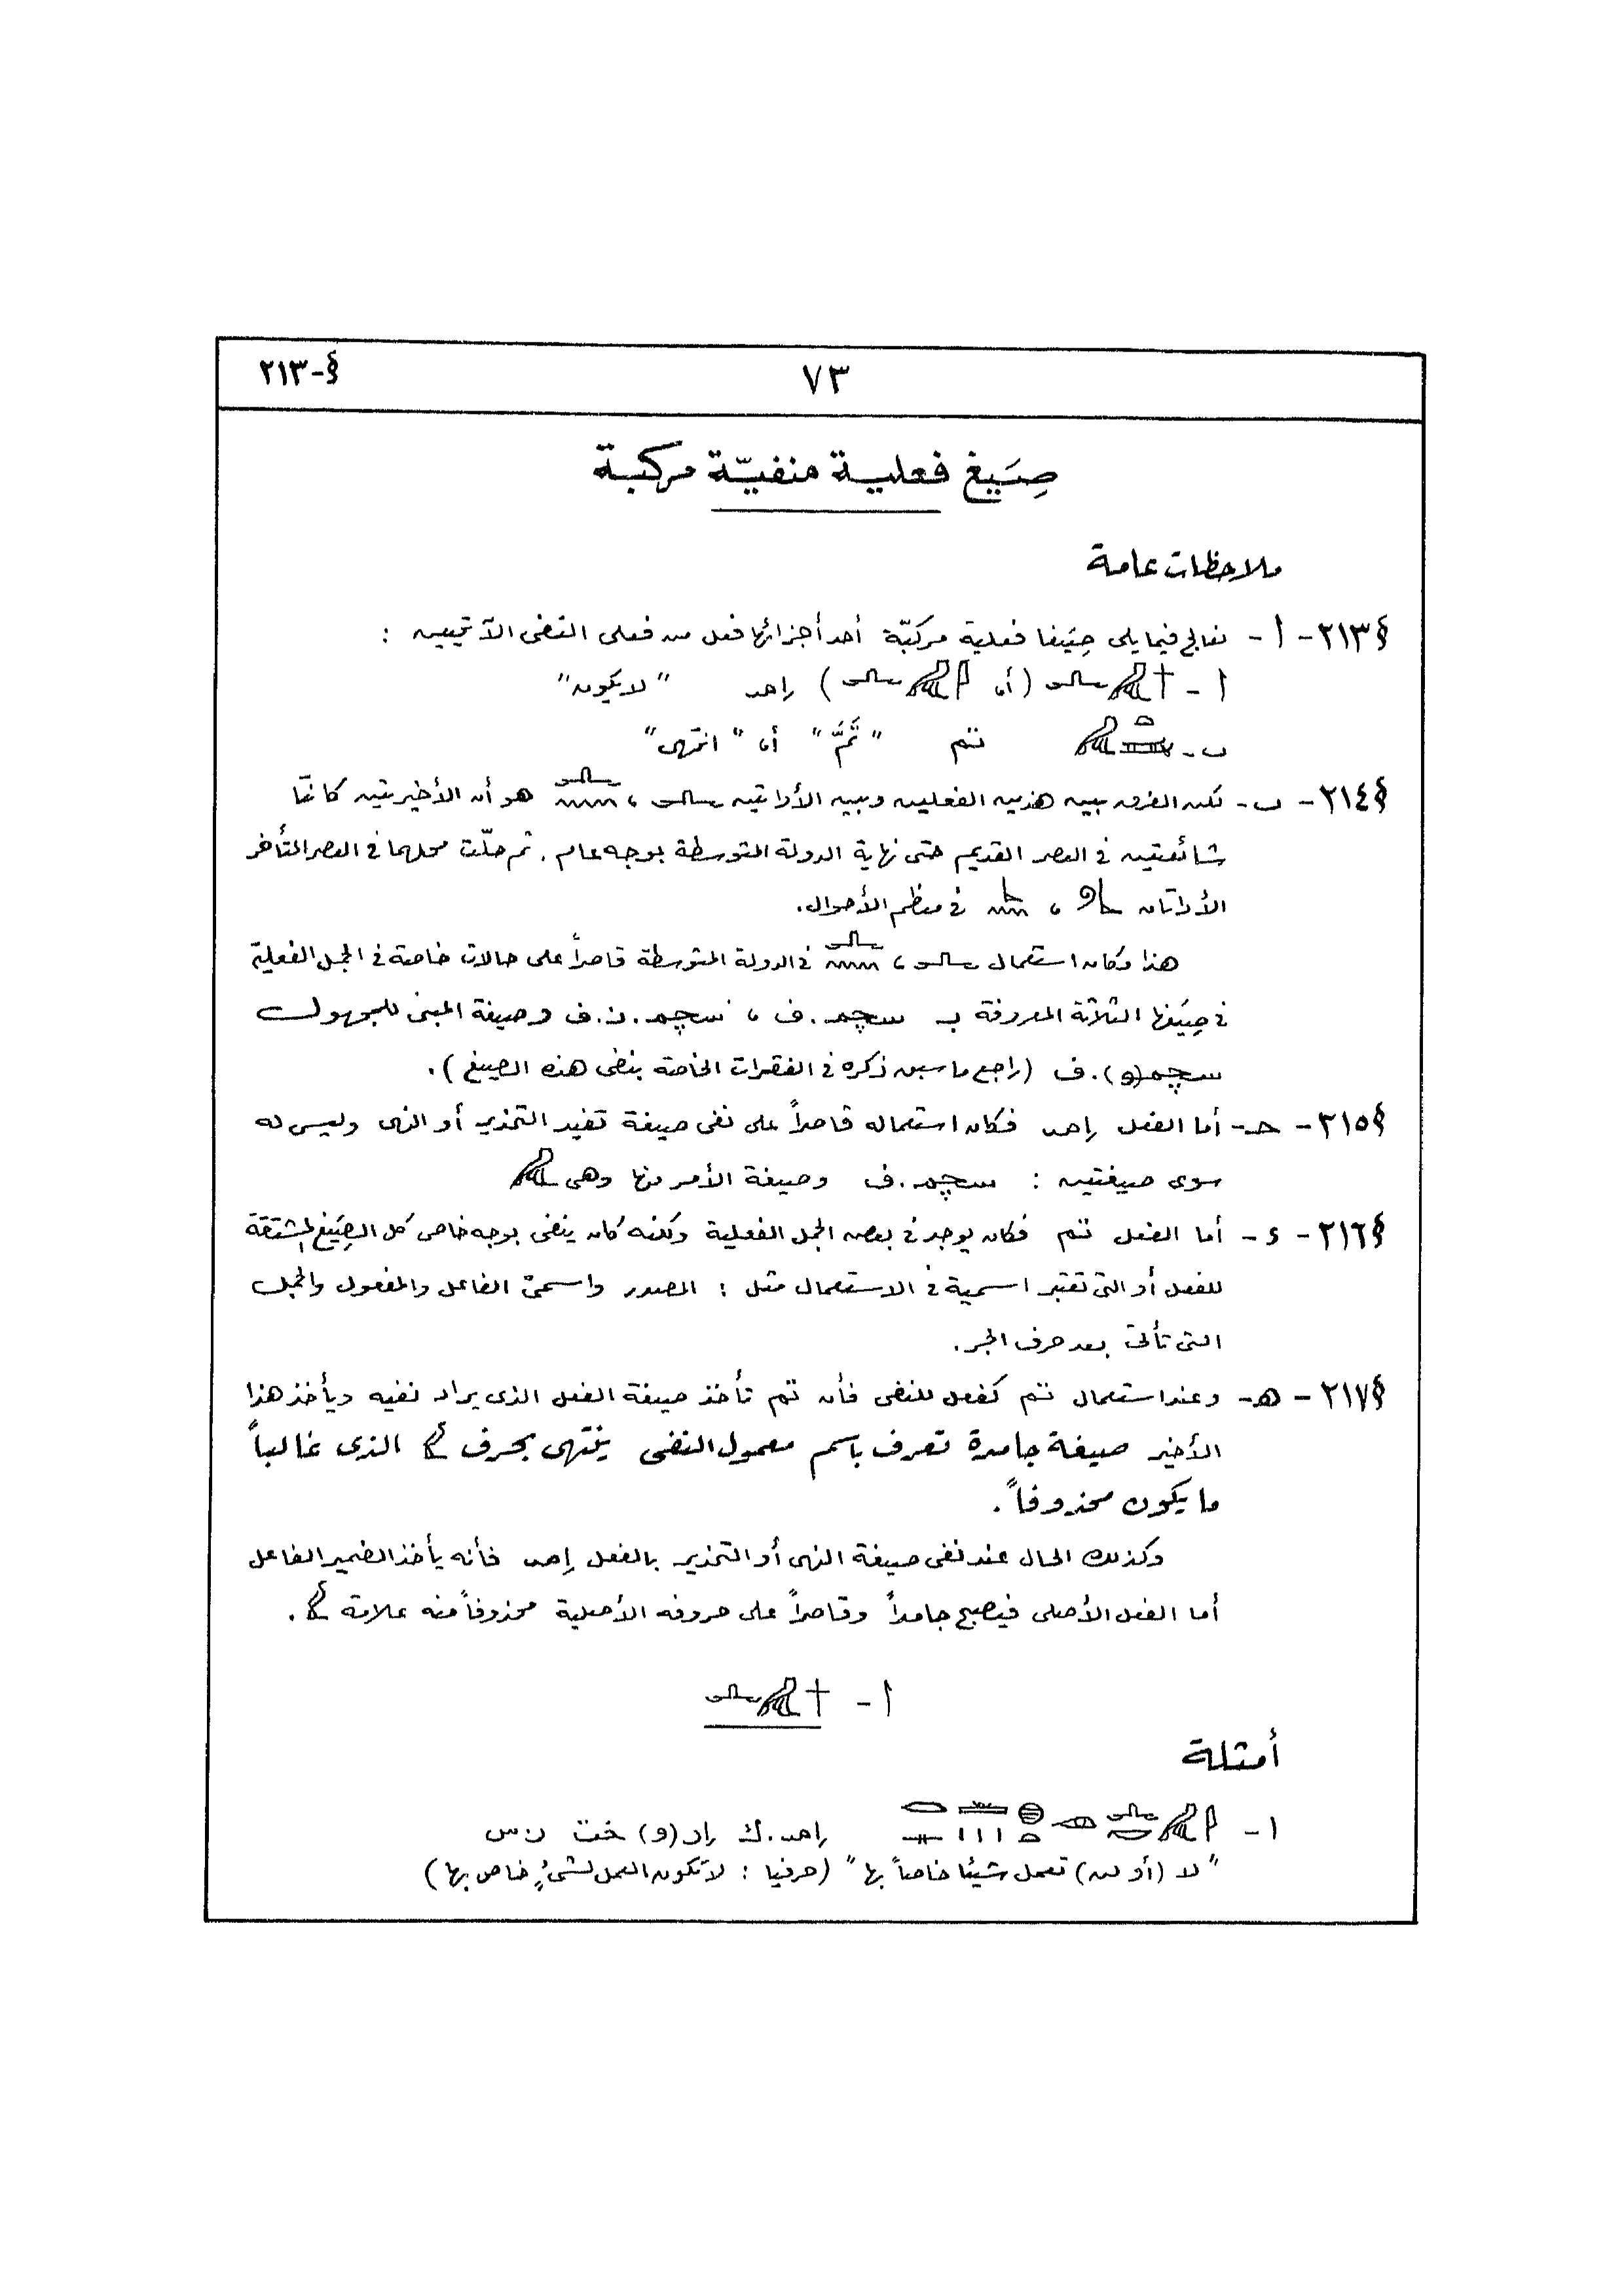 ٧٣
§-٢١٣
صِيَغ فعلية منفيّة مركبة
ملاحظات عامة
§٢١٣ - أ - نعالج فيما يلى صِيَغا فعلية مركبّة أحد أجزائها فعل من فعلى النفى الآتيين :
أ - 𓏶𓅓𓂜 (أو 𓇋𓅓𓂜) إمـ "لا يكون"
ب - 𓏏𓍃𓅓 تم "تَمَّ" أو "انتهى"
§٢١٤ - ب - لكن الفرق بين هذين الفعلين وبين الأداتين 𓂜 ، 𓂜𓈖 هو أن الأخيرتين كانتا
شائعتين فى العصر القديم حتى نهاية الدولة المتوسطة بوجه عام . ثم حلّت محلهما فى العصر المتأخر
الأداتان ، فى معظم الأحوال.
هذا وكان استعمال 𓂜 ، 𓂜𓈖 فى الدولة المتوسطة قاصراً على حالات خاصة فى الجمل الفعلية
فى صِيَغها الثلاثة المعروفة بـ سچم . ف ، سچم . ن . ف وصيغة المبنى للمجهول
سچم(و) . ف (راجع ما سبق ذكره فى الفقرات الخاصة بنفى هذه الصيغ ) .
§٢١٥ - حـ - أما الفعل فكان استعماله قاصراً على نفى صيغة تفيد التحذير أو النهى وليس له
سوى صيغتين : سچم . ف وصيغة الأمر منها وهى 𓅓
§٢١٦ - ء - أما الفعل تم فكان يوجد فى بعض الجمل الفعلية ولكنه كان ينفى بوجه خاص كل الصِيَغ المشتقة
للفعل أو التى تعتبر اسمية فى الاستعمال مثل : المصدر واسمىّ الفاعل والمفعول والجمل
التى تأتى بعد حرف الجر .
§٢١٧ - هـ - وعند استعمال تم كفعل للنفى فأن تم تأخذ صيغة الفعل الذى يراد نفيه ويأخذ هذا
الأخير صيغة جامدة تعرف باسم معمول النفى ينتهى بحرف 𓅱 الذى غالباً
ما يكون محذوفاً .
وكذلك الحال عند نفى صيغة النهى أو التحذير بالفعل فأنه يأخذ الضمير الفاعل
أما الفعل الأصلى فيصبح جامداً وقاصراً على حروفه الأصلية محذوفاً منه علامة 𓅱 .
أ - 𓏶𓅓𓂜
أمثلة
١ - 𓇋𓅓𓂜𓎡𓁹𓐍𓏏𓏛𓏥𓂋𓊃 . ك (و) خت
" لا (أو لن) تعمل شيئا خاصاً بها " (حرفيا : لا تكون العمل لشئٍ خاص بها )